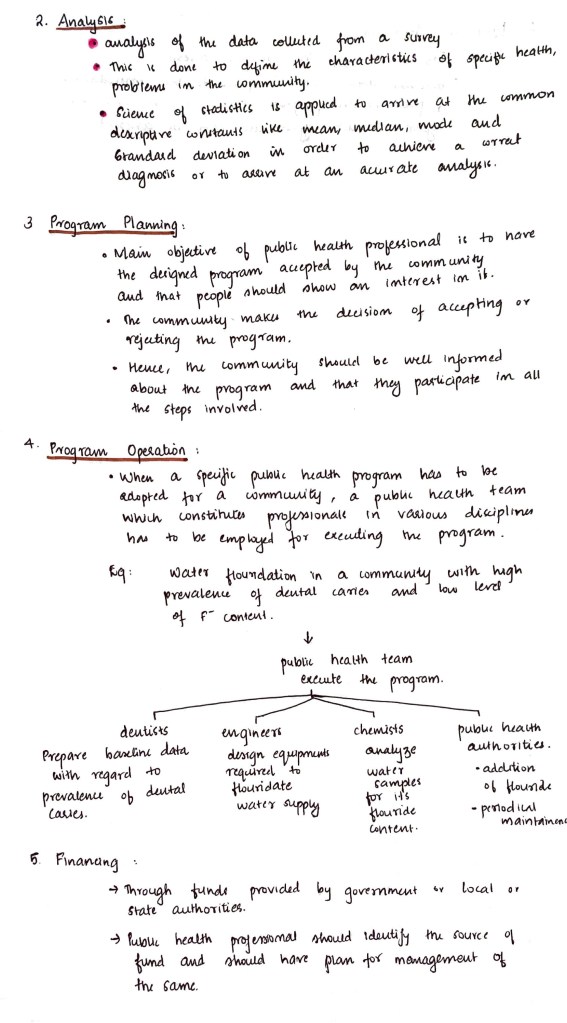 2. Analysis :
• analysis of the data collected from a survey
• This is done to define the characteristics of specific health,
problems in the community.
• Science of statistics is applied to arrive at the common
descriptive constants like mean, median, mode and
standard deviation in order to achieve a correct
diagnosis or to arrive at an accurate analysis.
3 Program Planning :
• Main objective of public health professional is to have
the designed program accepted by the community
and that people should show an interest in it.
• The community makes the decision of accepting or
rejecting the program.
• Hence, the community should be well informed
about the program and that they participate in all
the steps involved.
4. Program Operation :
• When a specific public health program has to be
adopted for a community, a public health team
which constitutes professionals in various disciplines
has to be employed for executing the program.
Eg: Water flouridation in a community with high
prevalence of dental carries and low level
of F⁻ content.
↓
public health team
execute the program.
dentists
Prepare baseline data
with regard to
prevalence of dental
caries.
engineers
design equipments
required to
flouridate
water supply
chemists
analyze
water
samples
for its
flouride
content.
public health
authorities.
• addition
of flouride
- periodical
maintainenc
5. Financing :
→ Through funds provided by government or local or
state authorities.
→ Public health professional should identify the source of
fund and should have plan for management of
the same.